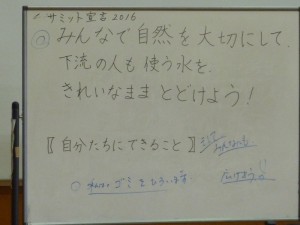 サミット宣言2016
◎みんなで自然を大切にして、
下流の人も使う水を、
きれいなまま とどけよう!
〖自分たちにできること〗
ゴミをひろいます